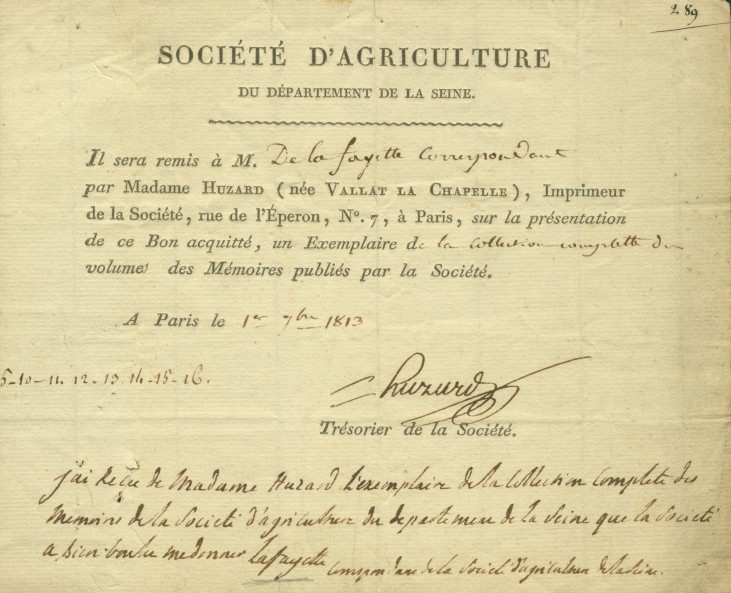 289
SOCIÉTÉ D'AGRICULTURE
DU DÉPARTEMENT DE LA SEINE.
Il sera remis à M. De la fayette Correspondant
par Madame HUZARD (née VALLAT LA CHAPELLE), Imprimeur
de la Société, rue de l'Éperon, N°. 7, à Paris, sur la présentation
de ce Bon acquitté, un Exemplaire de la Collection complette du
volumes des Mémoires publiés par la Société.
A Paris le 1er 7bre 1813
5-10-11. 12-13. 14-15-16.
huzard
Trésorier de la Société.
j'ai Reçu de Madame Huzard l'exemplaire de la Collection Complete des
Memoires de la Societé d'agriculture du departement de la Seine que la Societé
a bien voulu me donner Lafayette
Correspondant de la Societé d'agriculture de la Seine.